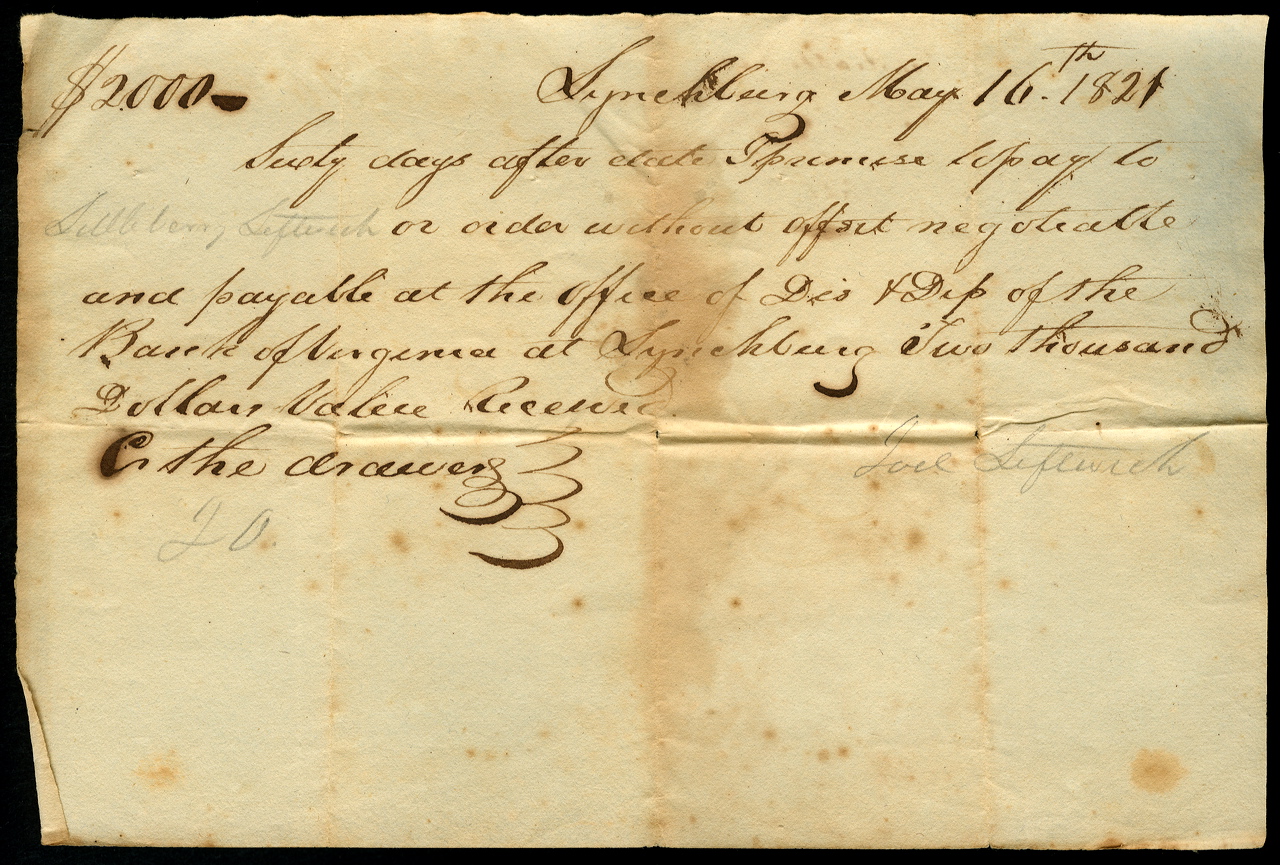 $2000 Lynchburg May 16.th 1821
Sixty days after date I promise to pay to
Littleberry Leftwich or order without offset negotiable
and payable at the office of Dis & Dep of the
Bank of Virginia at Lynchburg Two thousand
Dollars Value Received
Cr the drawer
Joel Leftwich